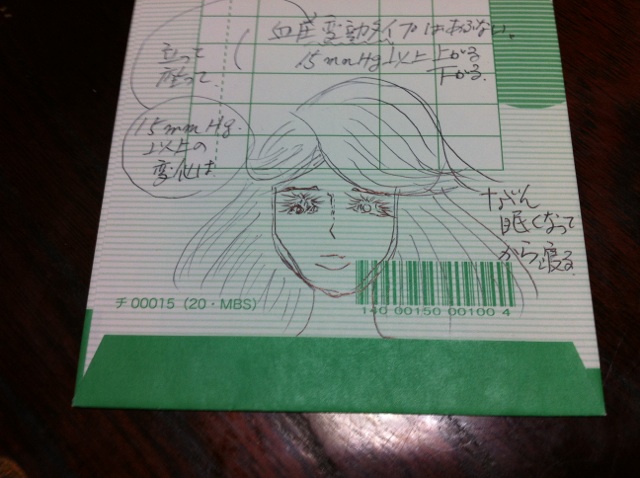 血圧変動タイプはあぶない。
15mmHg以上上がる
下がる
立って
座って
15mmHg.
以上の
変化は
眠くなって
から寝る
チ00015（20・MBS）
140 00150 00100 4